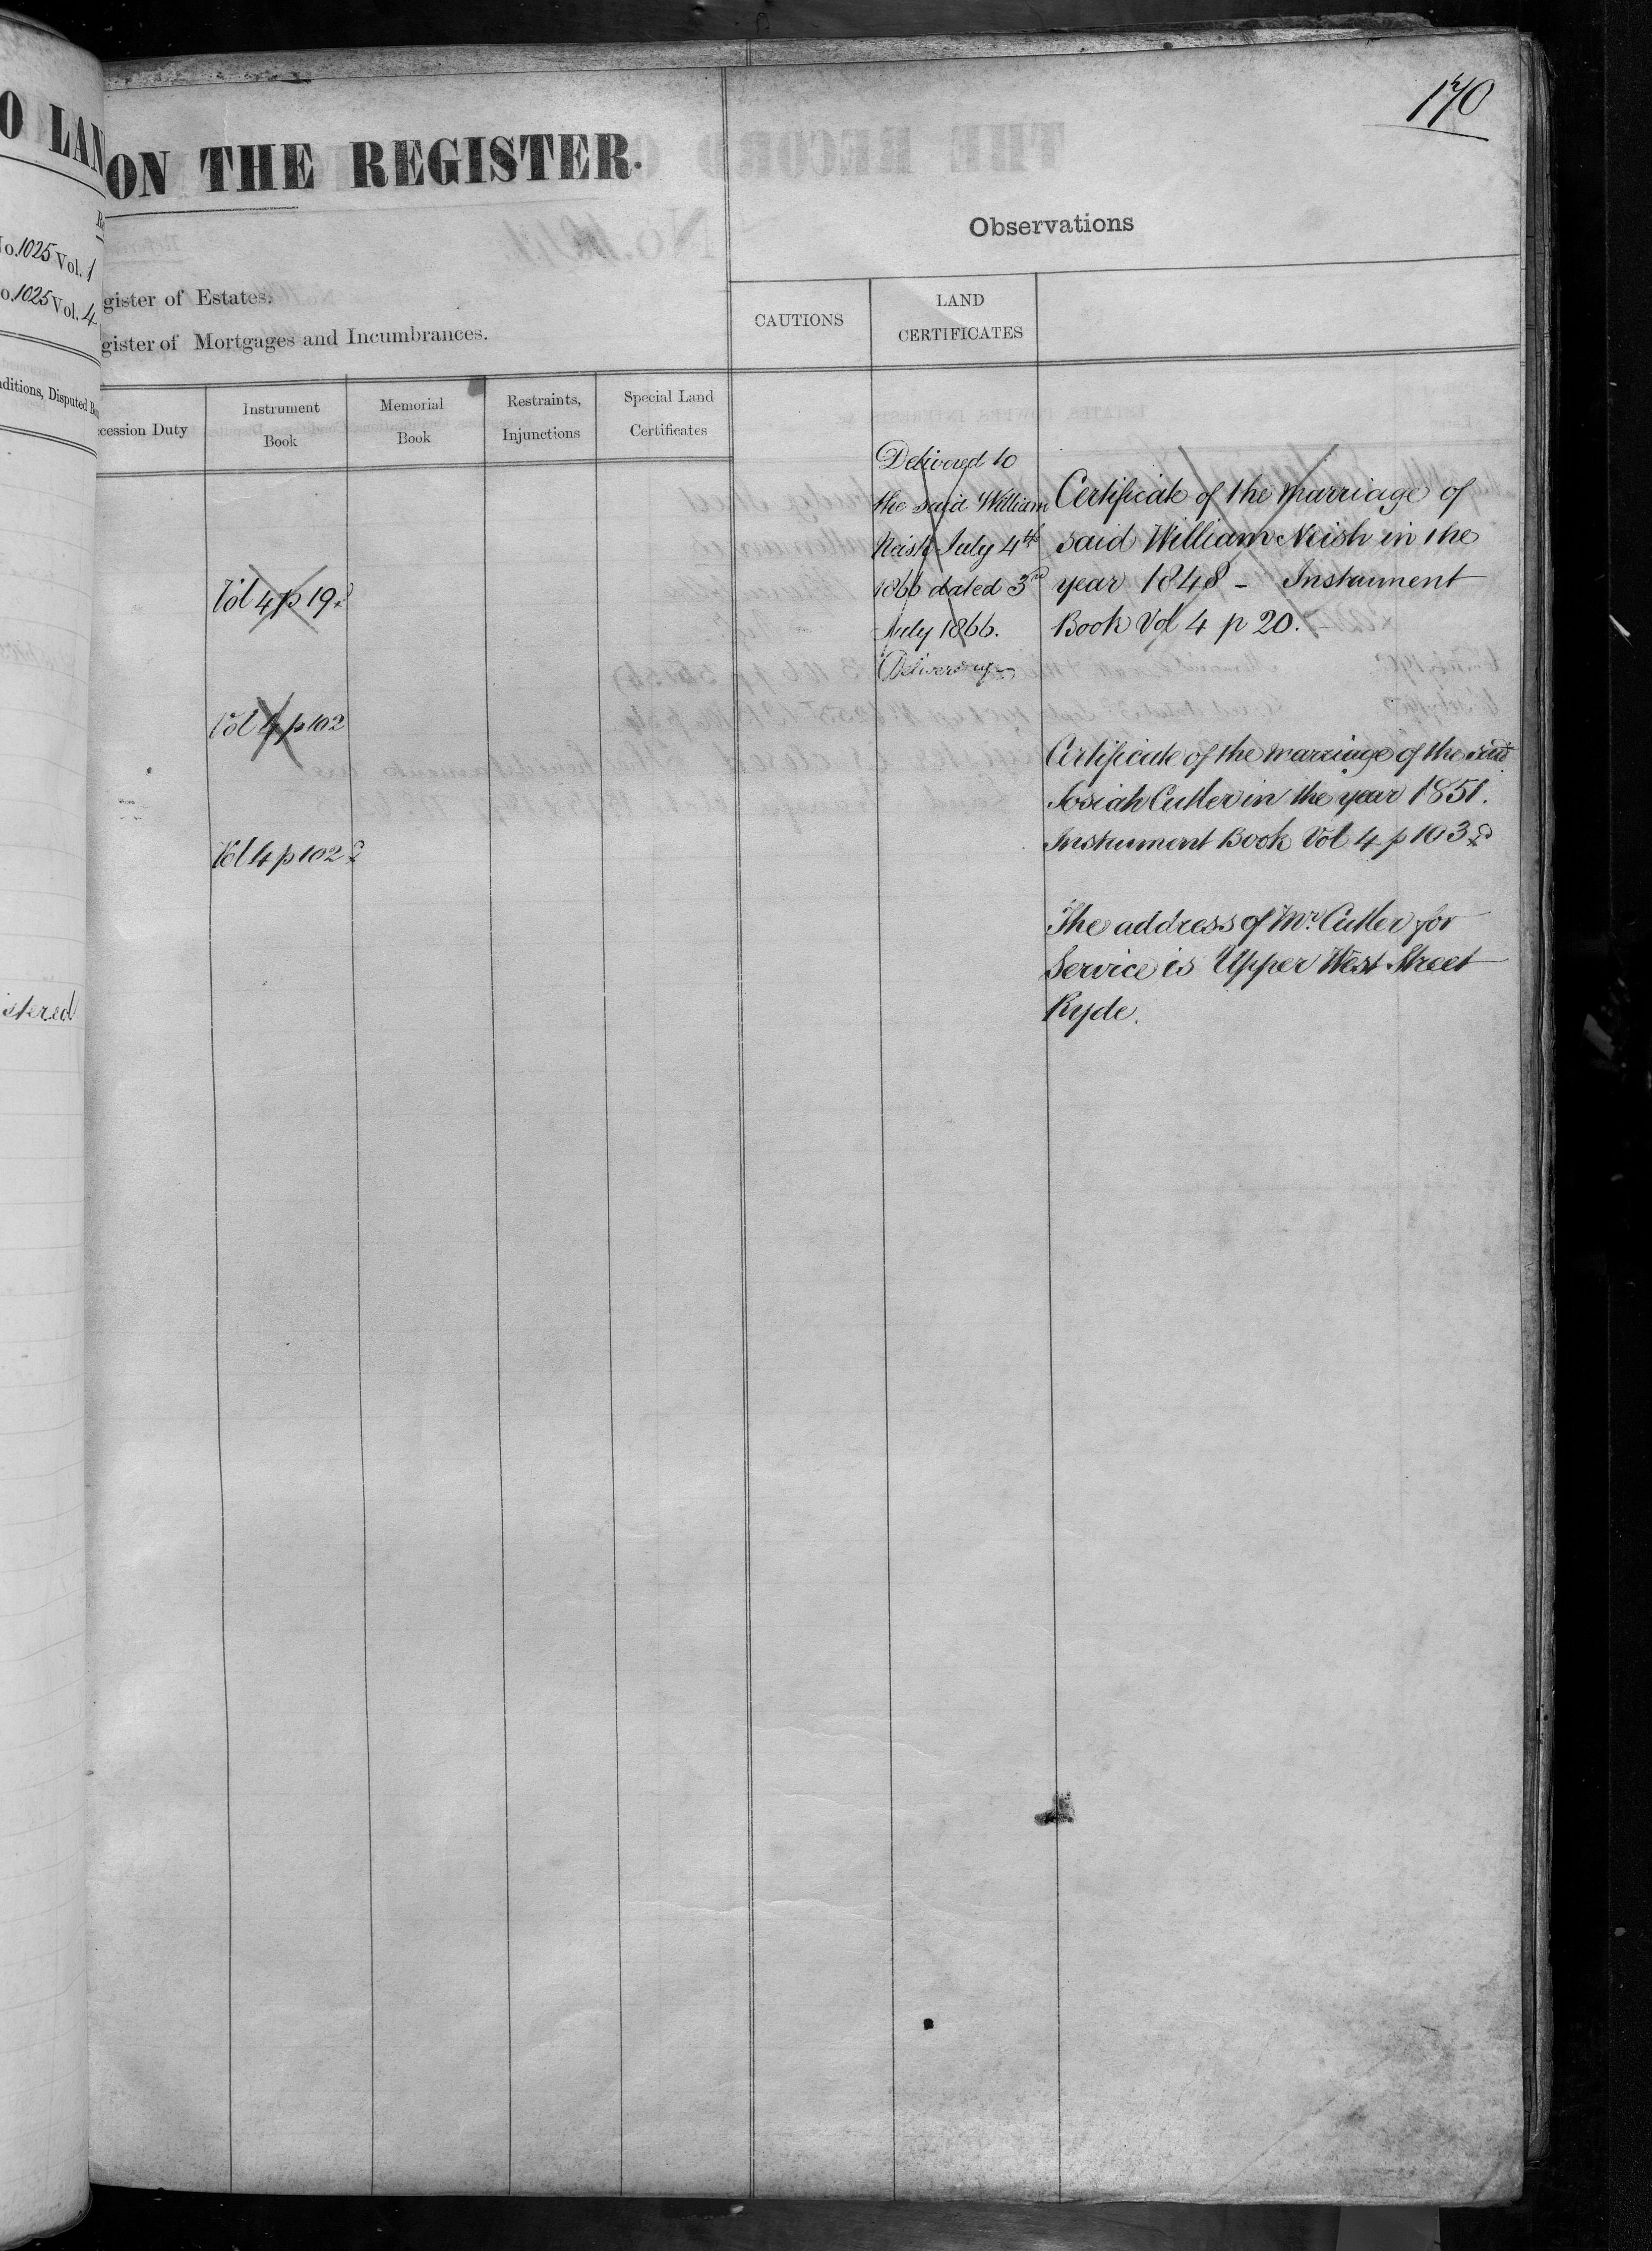 170
O LAN
ON THE REGISTER.
No. 1025 Vol. 1
No. 1025 Vol. 4
gister of Estates.
gister of Mortgages and Incumbrances.
Observations
CAUTIONS
LAND
CERTIFICATES
ditions, Disputed
cession Duty
Instrument
Book
Memorial
Book
Restraints,
Injunctions
Special Land
Certificates
Vol 4 p 19
Vol 4 p 102
Vol 4 p 102
istered
Delivered to
the said William
Neish July 4th
1866 dated 3rd
July 1866.
Delivered up
Certificate of the marriage of
said William Neish in the
year 1848 - Instrument
Book Vol 4 p 20.
Certificate of the marriage of the said
Josiah Cutler in the year 1851.
Instrument Book Vol 4 p 103
The address of Mr. Cutler for
Service is Upper West Street
Ryde.